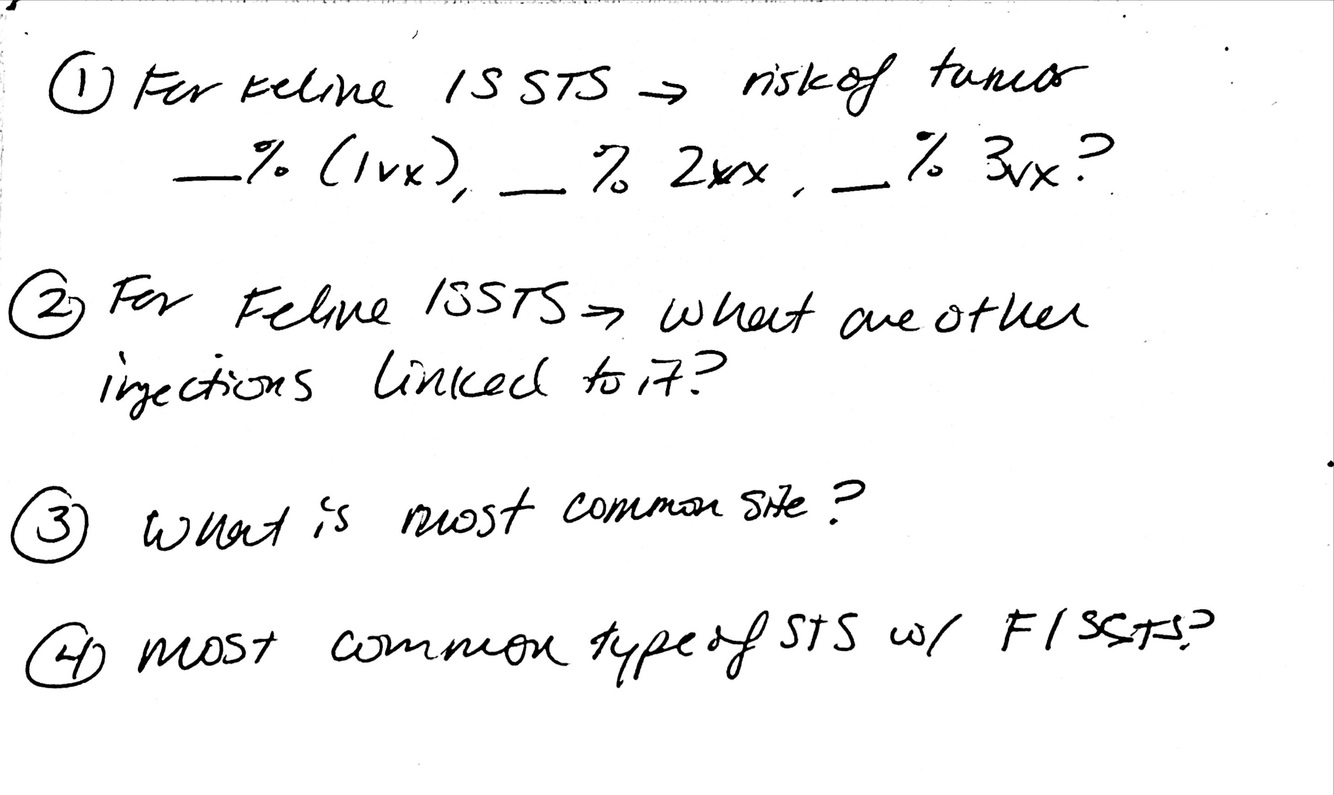 ① For Feline ISSTS → risk of tumor
_% (1vx), _% 2vx, _% 3vx?
② For Feline ISSTS → what are other
injections linked to it?
③ What is most common site?
④ most common type of STS w/ FISSTS?